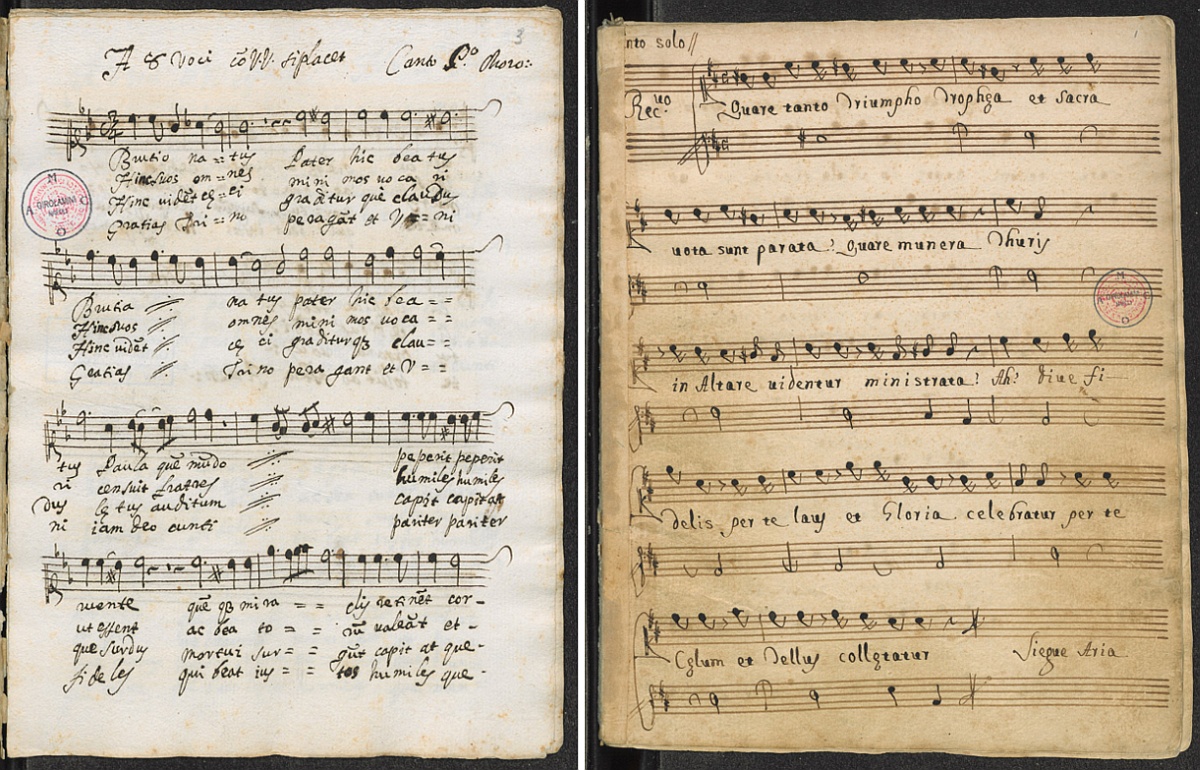 A 8 Voci co VV. siplacet Canto P.º Choro:
3
Brutio na = tus Pater hic bea tus
Hinc suos om = nes mini mos uo ca ri
Hinc uidet
gratias peragāt et V = ni
Brutia na tus pater hic bea = =
Hinc suos omnes mini mos uoca = =
Hinc uidēt graditurq3 clau = =
Gratias Trino pera gant et V = =
tus Paula quē mūdo peperit peperit
ri censuit fratres humiles humiles
dus auditum capit capit at
ni iam deo cuncti pariter pariter
mente quē q3 mira = = clis retinēt cor -
ut essent ac bea to = = rū ualeāt et -
que surdus mortui sur = = gūt capit at que -
fi de les qui beat ius = = tos humiles que -
nto solo //
1
Rec.uo Quare tanto Triumpho Trophęa et Sacra
uota sunt parata? Quare munera Thuris
in Altare uidentur ministrata? Ah? diue fi-
delis per te laus et Gloria celebratur per te
Cęlum et Tellus collętatur Siegue Aria